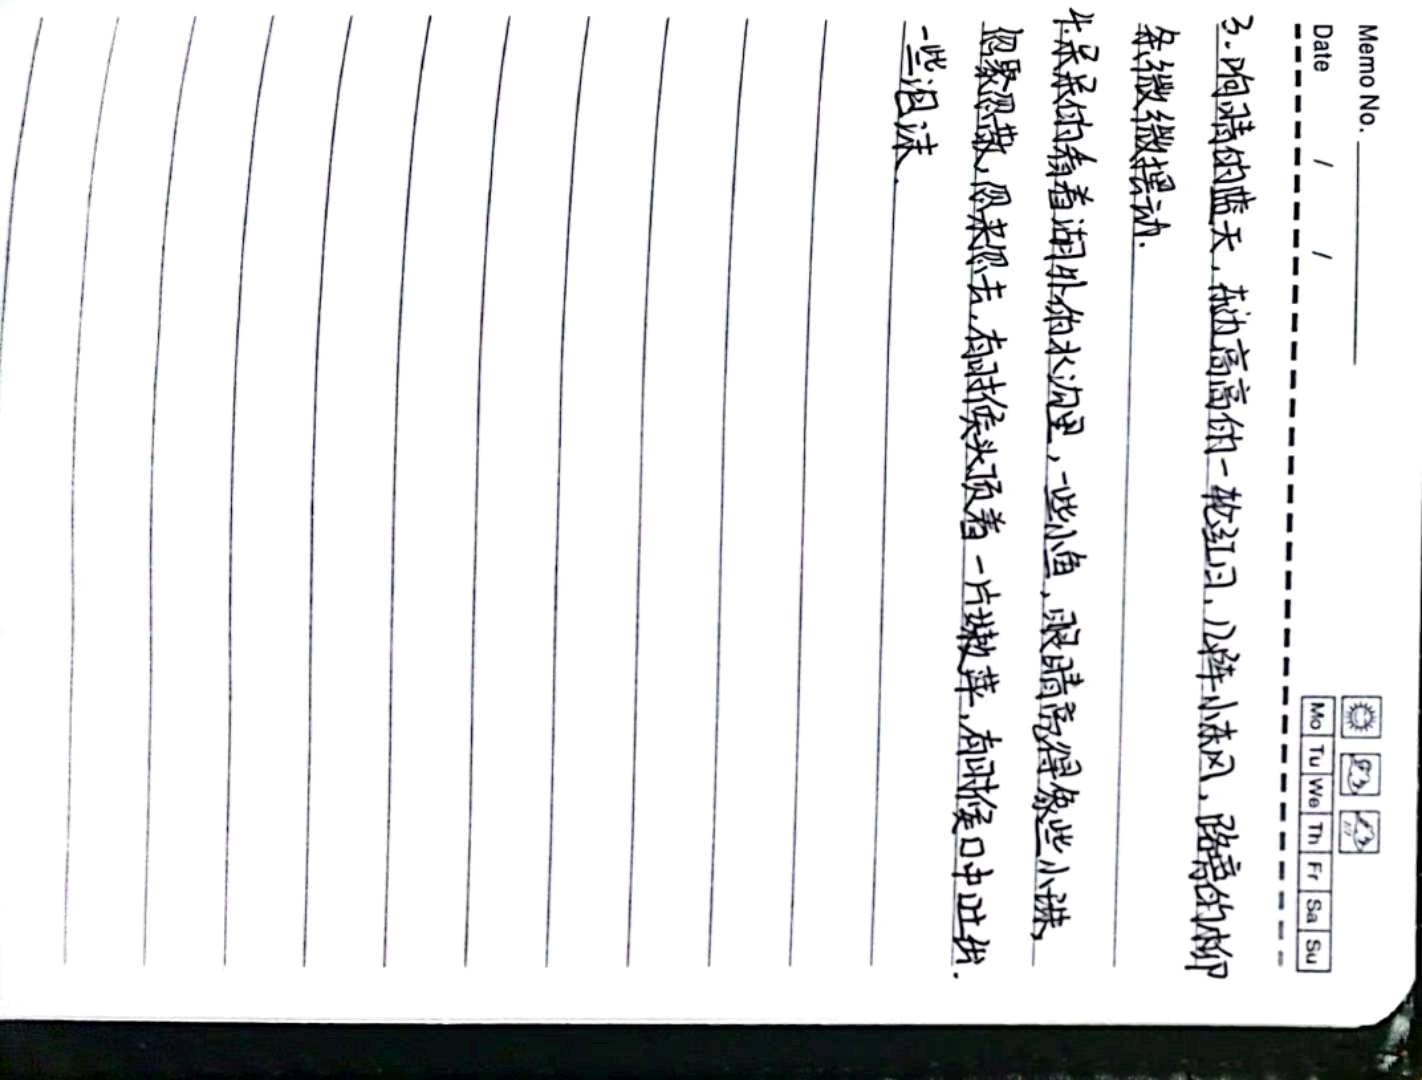 Memo No.
Date / /
Mo Tu We Th Fr Sa Su
3.响晴的蓝天,东边高高的一轮红日,几阵小东风,路旁的柳
条微微摆动.
4.呆呆的看着湖外的水沟里,一些小鱼,眼睛亮得像些小珠,
忽聚忽散,忽来忽去,有时候头顶着一片嫩萍,有时候口中吐出.
一些泡沫.